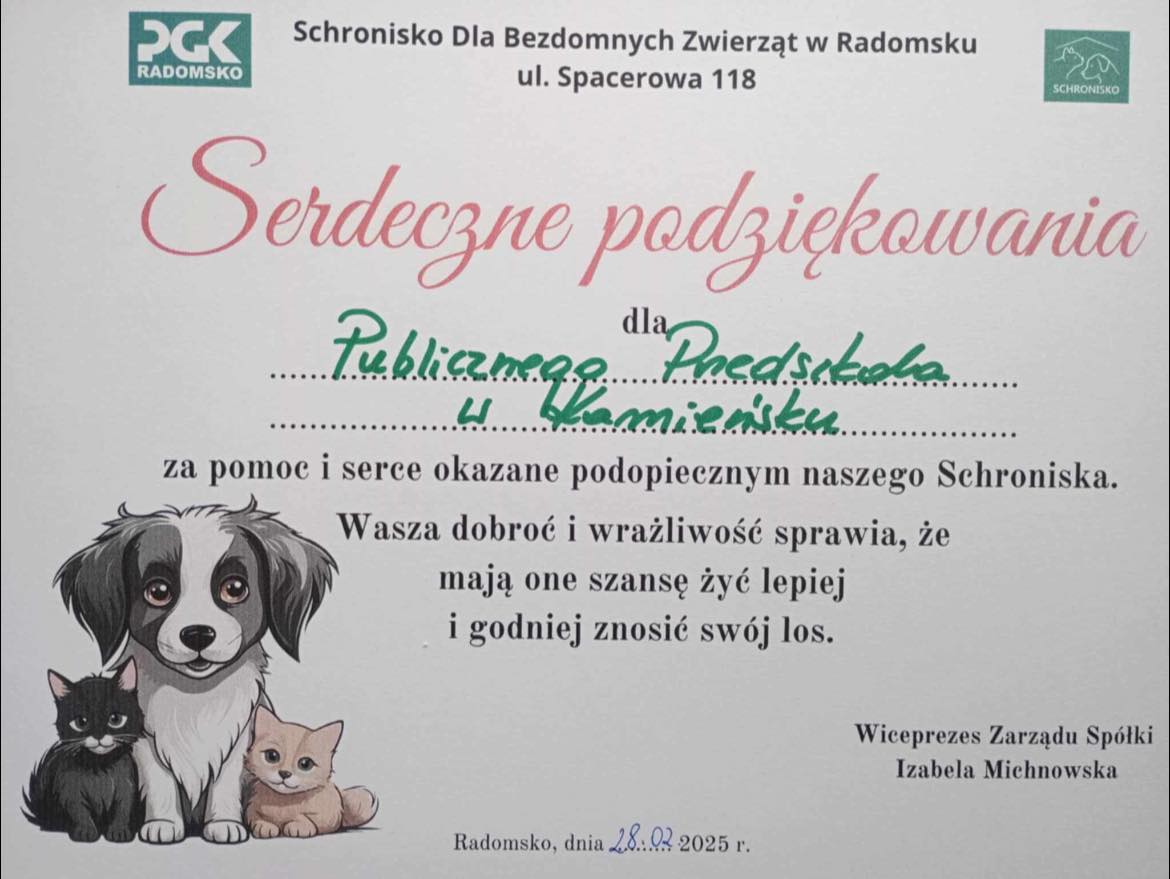 PGK
RADOMSKO
Schronisko Dla Bezdomnych Zwierząt w Radomsku
ul. Spacerowa 118
SCHRONISKO
Serdeczne podziękowania
dla
Publicznego Przedszkola
w Kamieńsku
za pomoc i serce okazane podopiecznym naszego Schroniska.
Wasza dobroć i wrażliwość sprawia, że
mają one szansę żyć lepiej
i godniej znosić swój los.
Wiceprezes Zarządu Spółki
Izabela Michnowska
Radomsko, dnia 28.02 2025 r.